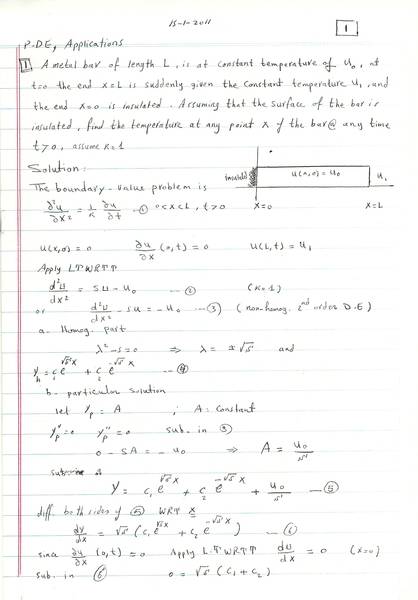 15-1-2011
1
P.DE, Applications
1 A metal bar of length L, is at constant temperature of U₀, at
t=0 the end x=L is suddenly given the Constant temperature U₁, and
the end x=0 is insulated. Assuming that the surface of the bar is
insulated, find the temperature at any point x of the bar @ any time
t>0, assume K=1
Solution:
The boundary-value problem is
insulated U(x,0) = U₀ U₁
x=0 x=L
∂²u/∂x² = 1/K ∂u/∂t —① 0<x<L, t>0
U(x,0) = 0 ∂u/∂x (0,t) = 0 U(L,t) = U₁
Apply L.T WRT
d²U/dx² = SU - U₀ —② (K=1)
or d²U/dx² - SU = -U₀ —③ (non-homog. 2nd order D.E)
a- Homog. part
λ² - s = 0 ⇒ λ = ±√s and
y_h = c₁e^{√s x} + c₂e^{-√s x} —④
b- particular solution
let y_p = A ; A: constant
y_p' = 0 y_p'' = 0 sub. in ③
0 - SA = -U₀ ⇒ A = U₀/s
Y = c₁e^{√s x} + c₂e^{-√s x} + U₀/s —⑤
diff both sides of ⑤ WRT x
dy/dx = √s (c₁e^{√s x} + c₂e^{-√s x}) —⑥
since ∂u/∂x (0,t) = 0 Apply L.T WRT dU/dx = 0 (x=0)
sub. in ⑥ 0 = √s (c₁ + c₂)